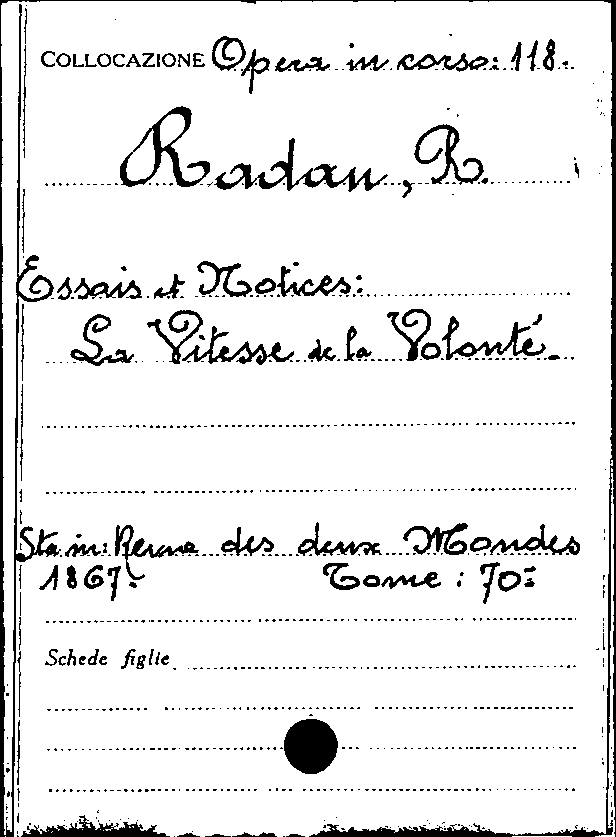 COLLOCAZIONE Opera in corso: 118.
Radau, R.
Essais et Notices:
La Vitesse de la Volonté.
Sta in: Revue des deux Mondes
1867. Tome : 70:
Schede figlie